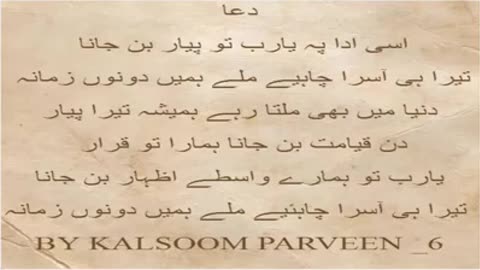 دعا
اسی ادا پہ یارب تو پیار بن جانا
تیرا ہی آسرا چاہیے ملے ہمیں دونوں زمانہ
دنیا میں بھی ملتا رہے ہمیشہ تیرا پیار
دن قیامت بن جانا ہمارا تو قرار
یارب تو ہمارے واسطے اظہار بن جانا
تیرا ہی آسرا چاہئیے ملے ہمیں دونوں زمانہ
BY KALSOOM PARVEEN _6